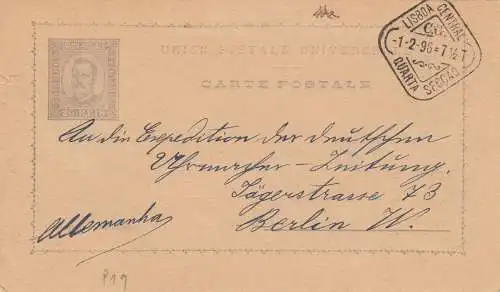 UNION POSTALE UNIVERSELLE
CARTE POSTALE
LISBOA CENTRAL
-1-2-96*7½T
QUARTA SECÇÃO
An die Expedition der deutschen
Uhrmacher-Zeitung.
Jägerstrasse 73
Berlin W.
Allemanha
P19